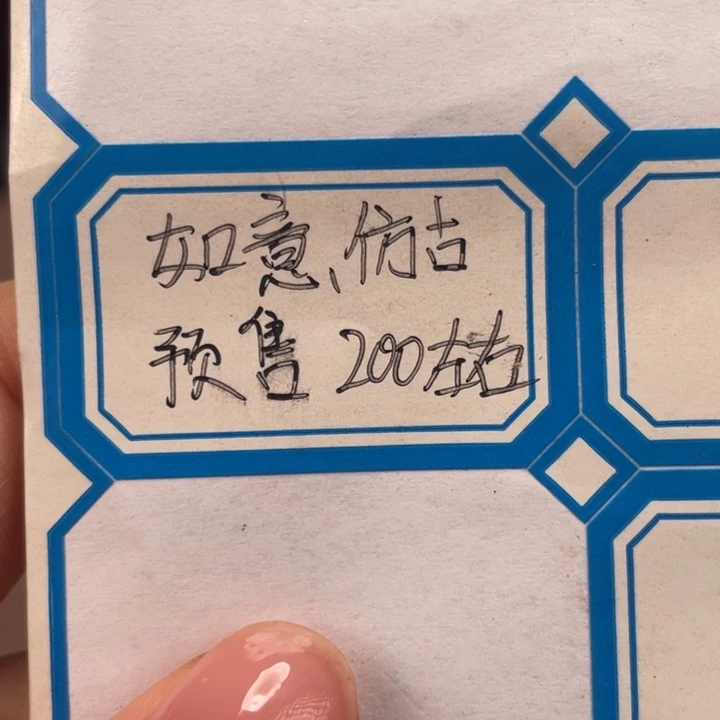 如意、仿古
预售 200左右